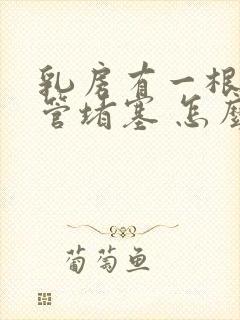 乳房有一根
管堵塞 怎
葡萄鱼